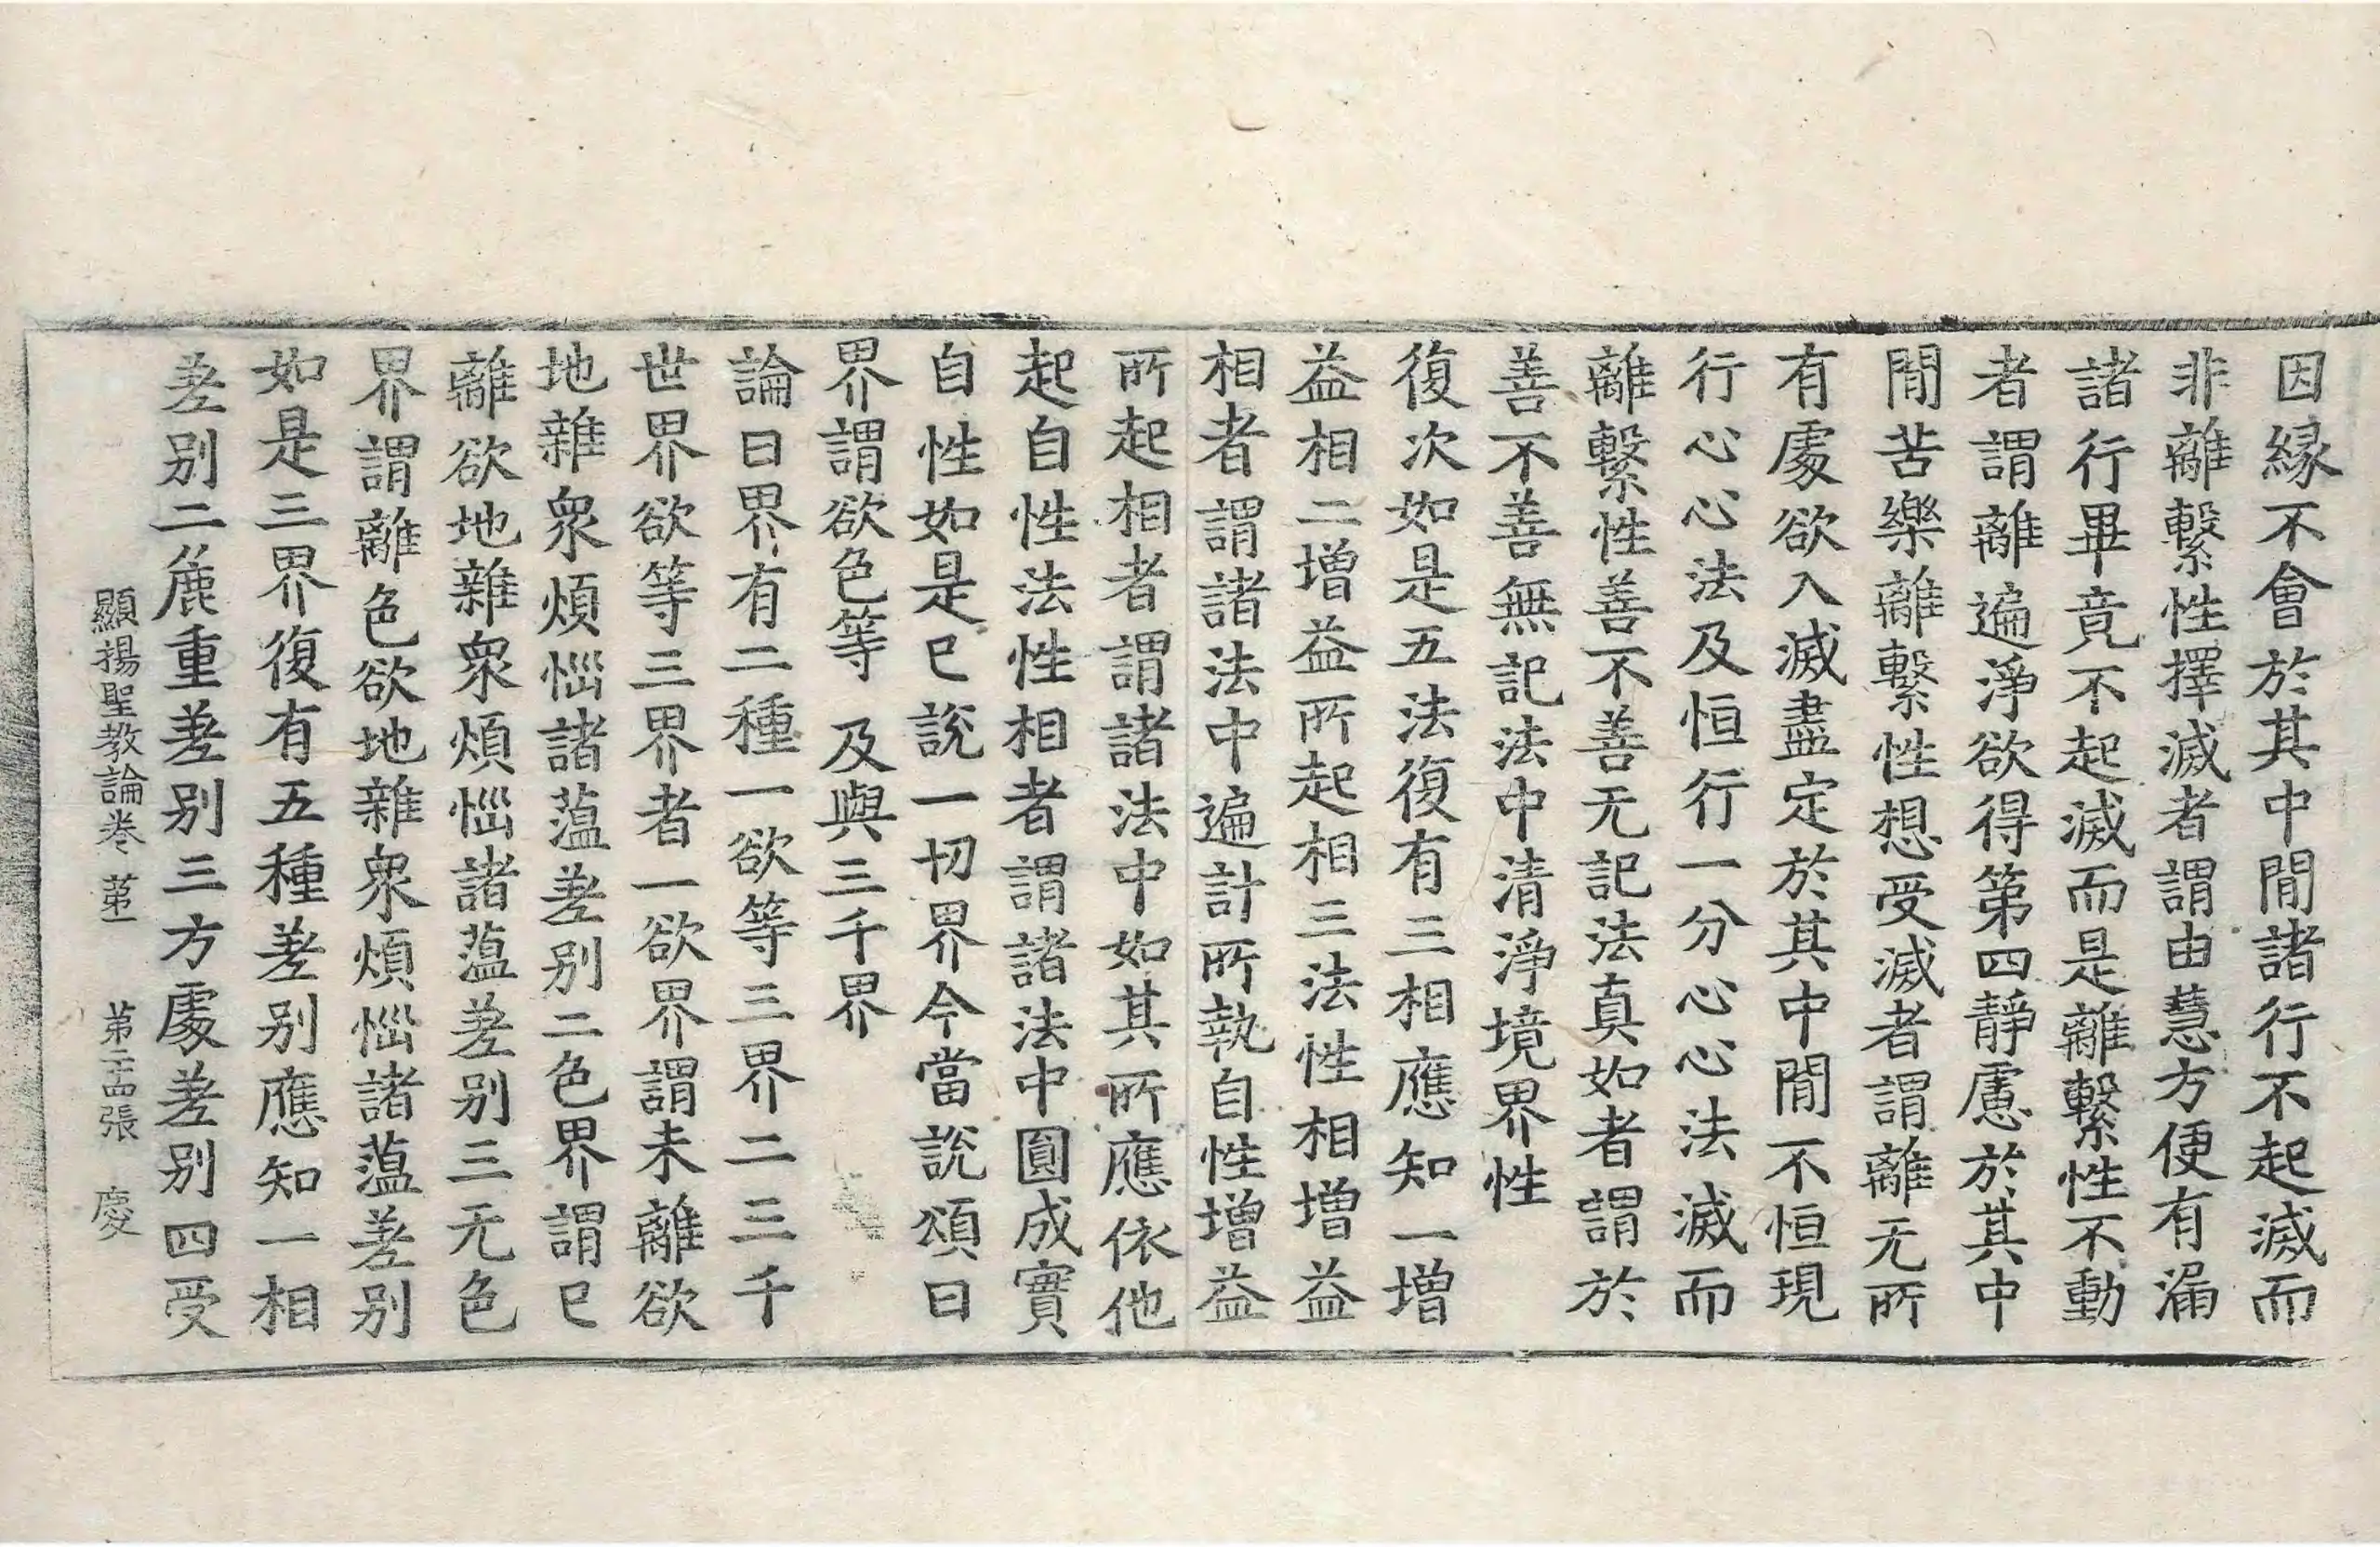 因縁不會於其中閒諸行不起滅而
非離繫性擇滅者謂由慧方便有漏
諸行畢竟不起滅而是離繫性不動
者謂離遍淨欲得第四靜慮於其中
閒苦樂離繫性想受滅者謂離无所
有處欲入滅盡定於其中閒不恒現
行心心法及恒行一分心心法滅而
離繫性善不善无記法真如者謂於
善不善無記法中清淨境界性
復次如是五法復有三相應知一增
益相二增益所起相三法性相增益
相者謂諸法中遍計所執自性增益
所起相者謂諸法中如其所應依他
起自性法性相者謂諸法中圓成實
自性如是已說一切界今當說頌曰
界謂欲色等　及與三千界
論曰界有二種一欲等三界二三千
世界欲等三界者一欲界謂未離欲
地雜衆煩惱諸蕰差别二色界謂已
離欲地雜衆煩惱諸蕰差别三无色
界謂離色欲地雜衆煩惱諸蕰差别
如是三界復有五種差别應知一相
差别二麁重差别三方處差别四受
顯揚聖教論卷第一　第二十四張　慶